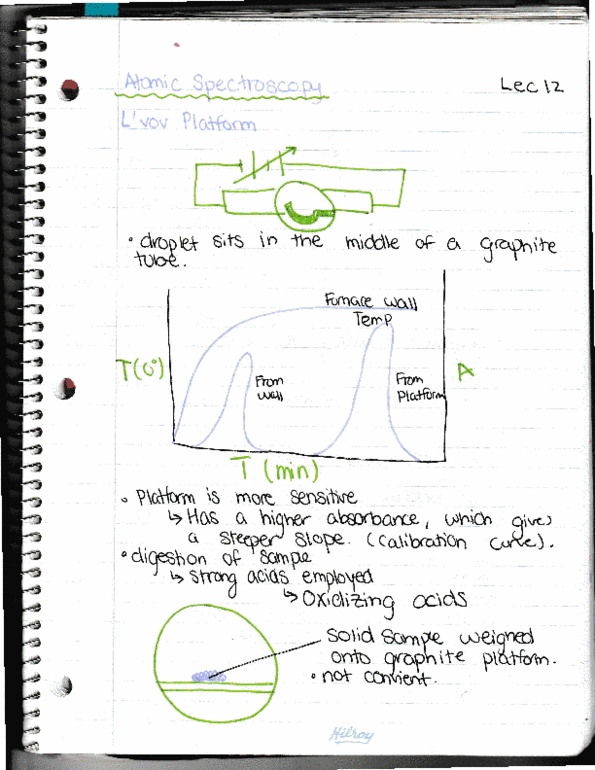 Atomic Spectroscopy
Lec 12
L'vov Platform
• droplet sits in the middle of a graphite
tube.
Furnace wall
Temp
T(0°)
From
wall
From
Platform
A
T (min)
• Platform is more sensitive
↳ Has a higher absorbance, which gives
a steeper slope. (calibration curve).
• digestion of sample
↳ strong acids employed
↳ Oxidizing acids
solid sample weighed
onto graphite platform.
• not convient.
Hilroy